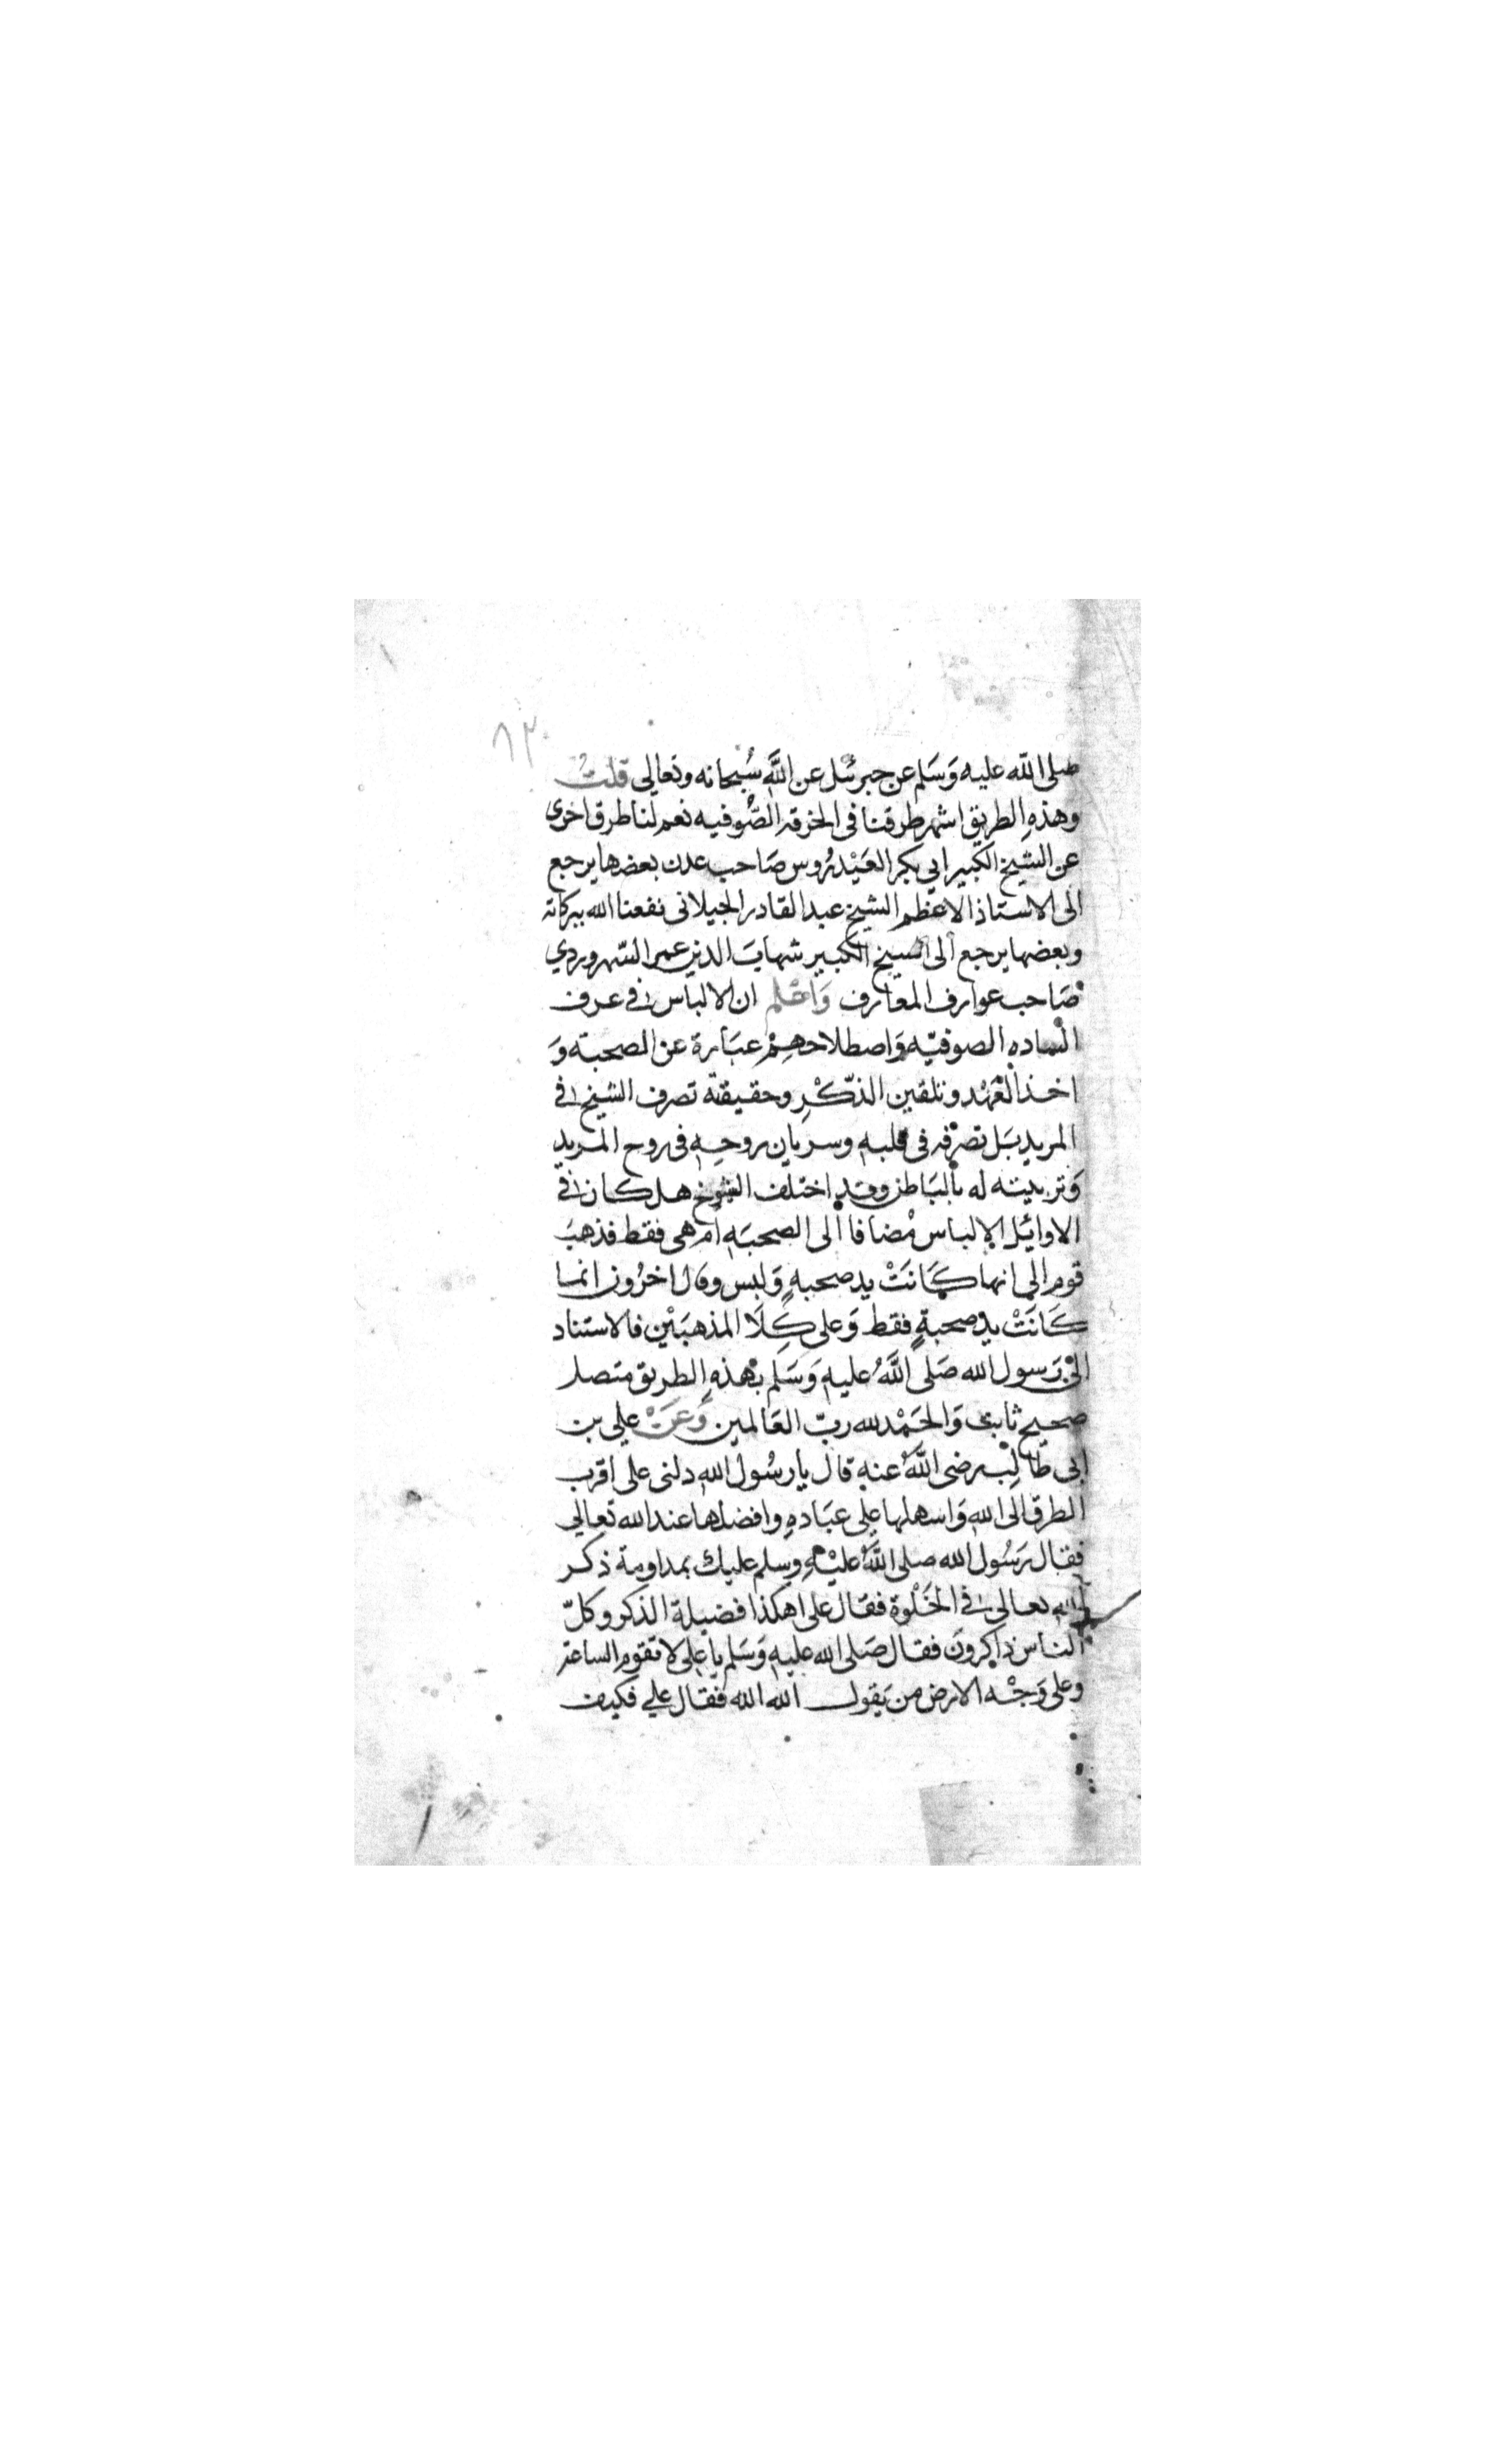 ٨٢
صلى الله عليه وَسَلم عن جبرئل عن اللَّه سُبحانه وتعالى قلت
وهذهِ الطريق اشهر طرقنا فى الخرقه الصُّوفيه نعم لنا طرق اخرى
عن الشيخ الكبير ابي بكر العَيْدرُوس صَاحب عدن بعضها يرجع
الى الاستاذ الاعظم الشيخ عبد القادر الجيلانى نفعنا الله ببركاته
وبعضها يرجع الى الشيخ الكبير شهابَ الدين عمر السّهروردي
صَاحب عوارف المعارف وَاعْلم ان الالباس فى عرف
السَاده الصوفيّه وَاصطلاحهِمْ عبَارة عن الصحبَة وَ
اخذ العَهْد وتلقين الذّكْرِ وحقيقته تصرف الشيخ فى
المريد بَل تصرفه فى قلبهِ وسريان روحِهِ فى روح المريد
وَتربيته له بالبَاطن وقد اختلف الشيوخ هل كان فى
الاوائل الالباس مُضافا الى الصحبَهِ أم هى فقط فذهبَ
قوم الى انها كَانَتْ يد صحبهٍ وَلبس وقال اخرُون انما
كَانَتْ يد صحبةٍ فقط وَعلى كِلَا المذهبَيْن فالاستناد
الى رَسول الله صَلى اللَّهُ عليهِ وَسَلم بهذهِ الطريق متصل
صحيح ثابت وَالحَمْد لله ربّ العَالمين وَعَنْ علي بن
ابى طالِب رضى اللَّهُ عنهِ قال يا رسُول اللهِ دلنى على اقرب
الطرق الى اللهِ وَاسهلها على عبَادهِ وافضلها عند الله تعالى
فقال رَسُول الله صلى اللَّهُ عليْهِ وسلم عليك بمداومة ذكر
الله تعالى فى الخَلْوة فقال على اهكذا فضيلة الذكر وكلّ
الناس ذاكرونَ فقال صَلى الله عليهِ وَسَلم يا على لا تقوم الساعة
وعلى وَجْه الارض من يَقول الله الله فقال علي فكيف